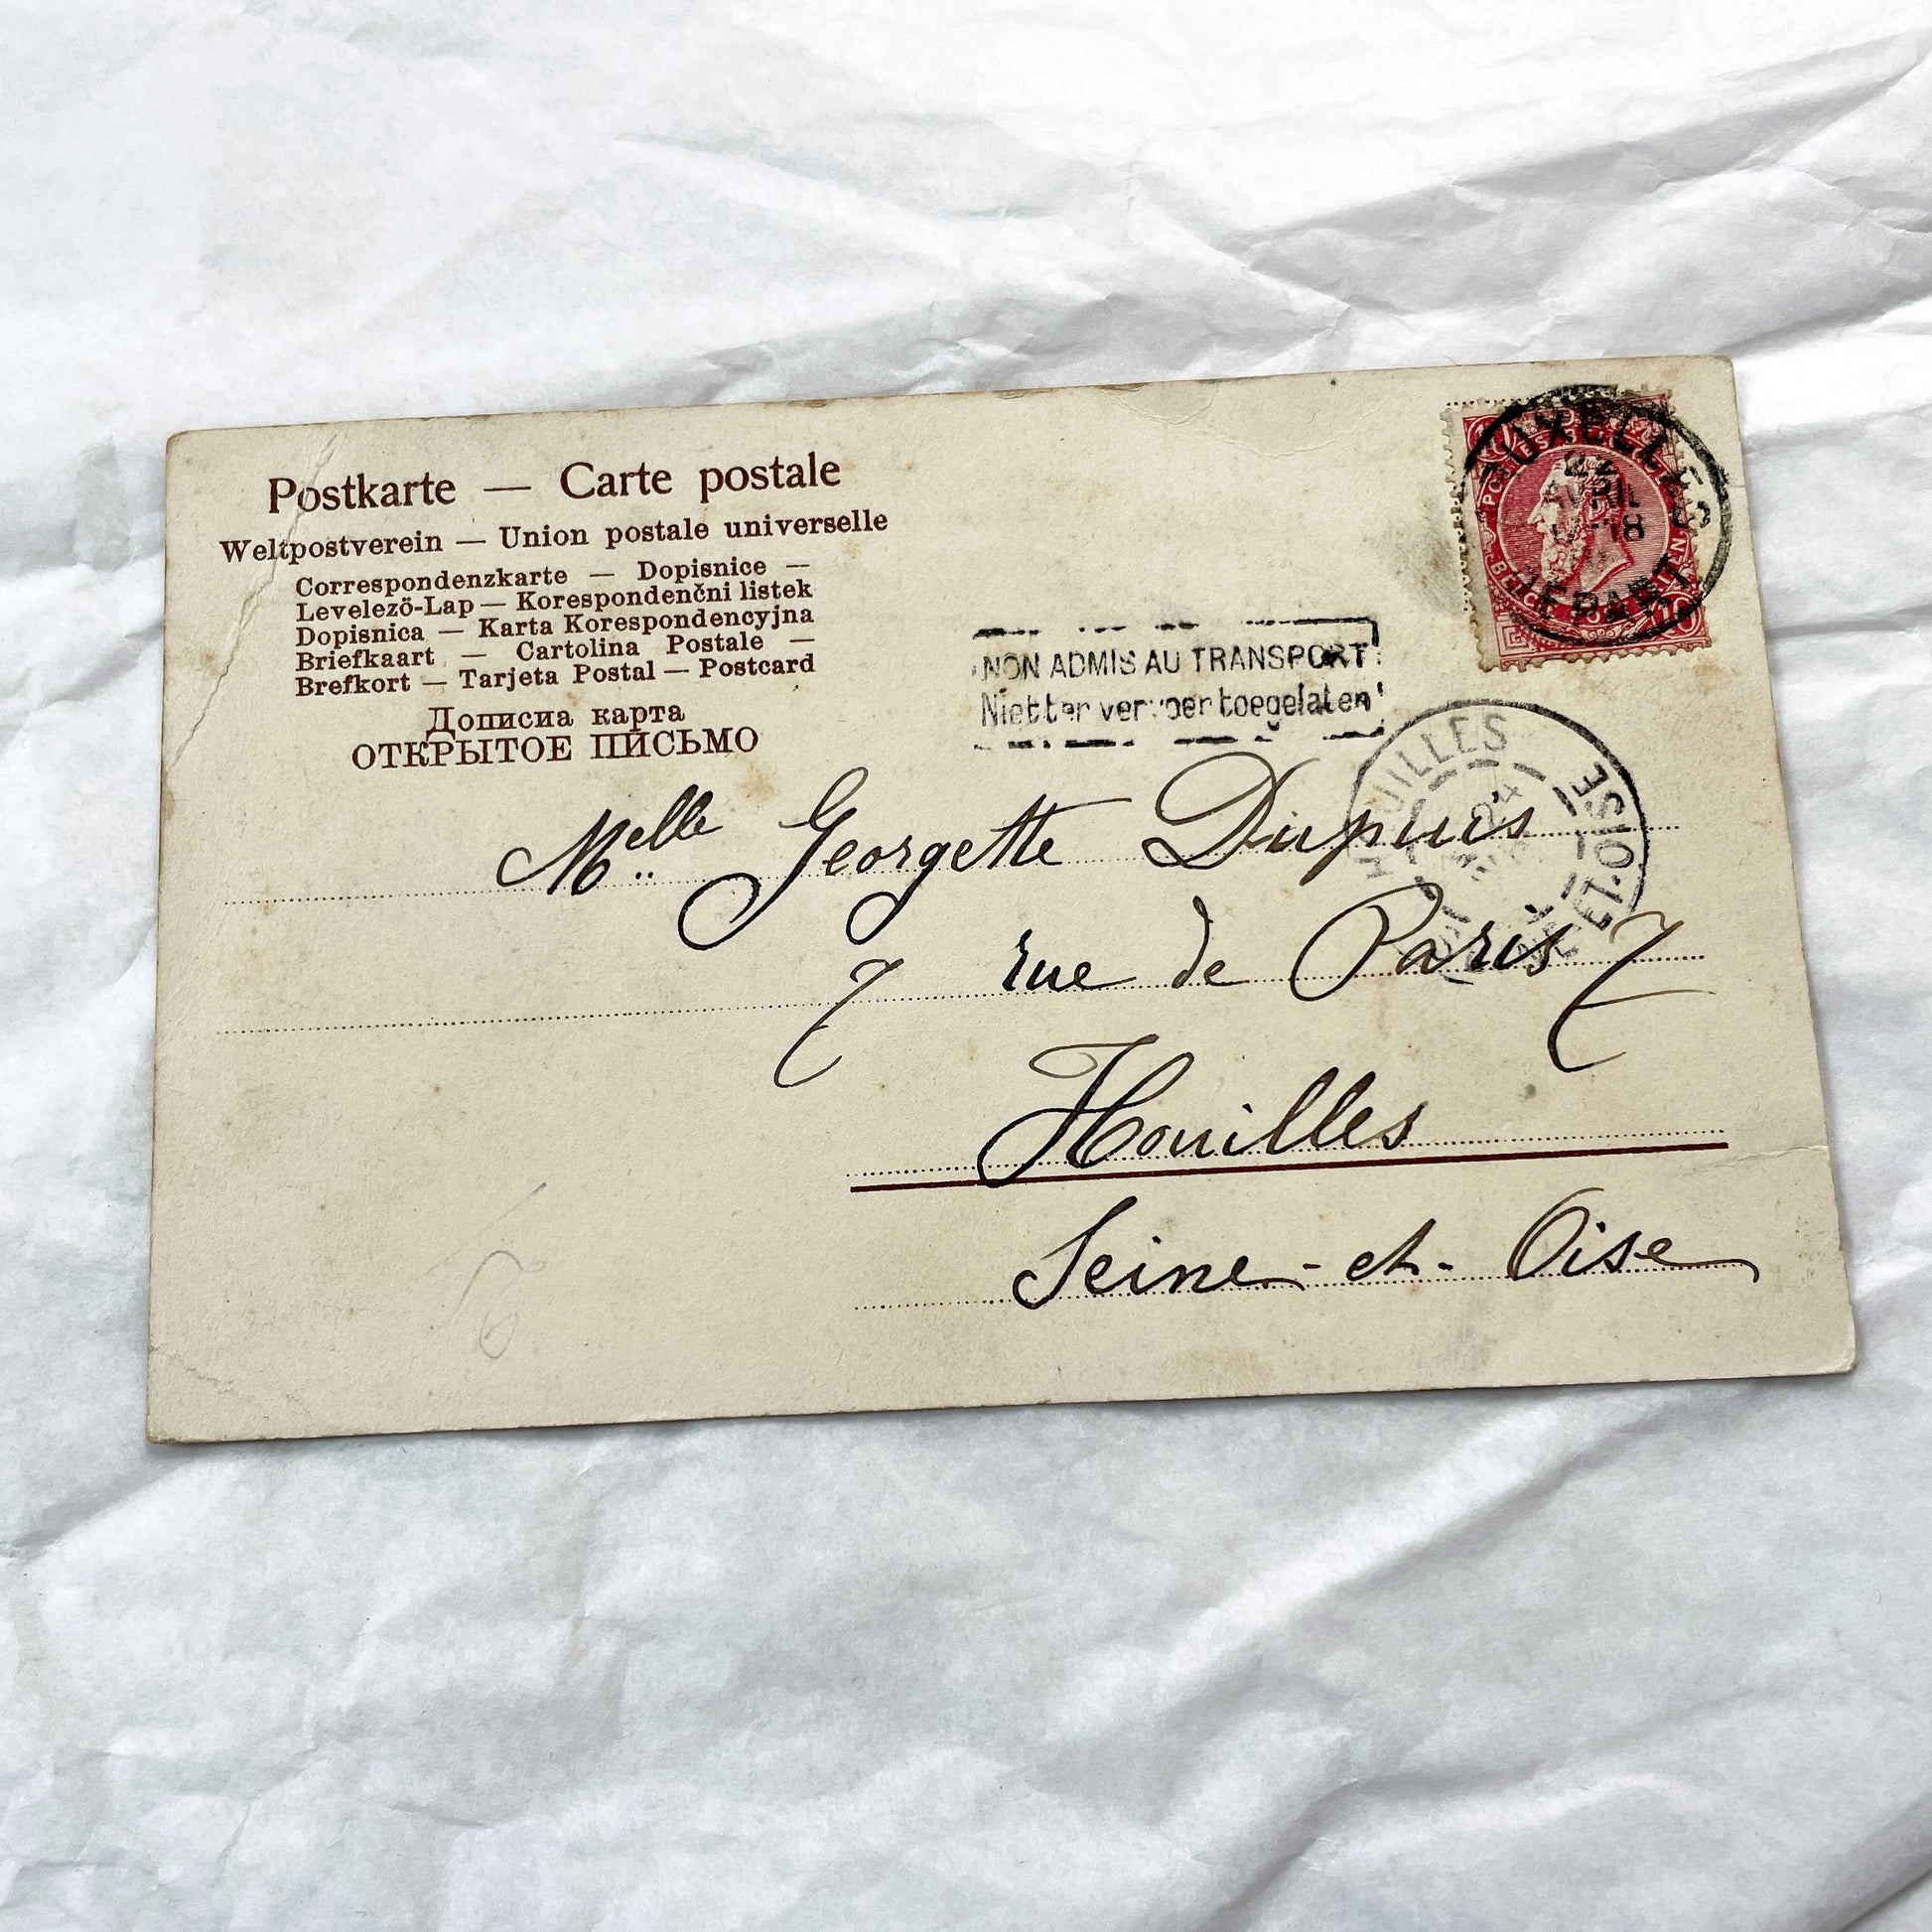 Postkarte — Carte postale
Weltpostverein — Union postale universelle
Correspondenzkarte — Dopisnice —
Levelezö-Lap — Korespondenčni listek
Dopisnica — Karta Korespondencyjna
Briefkaart — Cartolina Postale —
Brefkort — Tarjeta Postal — Postcard
Дописна карта
ОТКРЫТОЕ ПИСЬМО
UXELLES
22
AVRIL
18
DEPART
NON ADMIS AU TRANSPORT
Niet ter vervoer toegelaten
HOUILLES
24
ET-OISE
Melle Georgette Dupuis
7 rue de Paris 7
Houilles
Seine-et-Oise